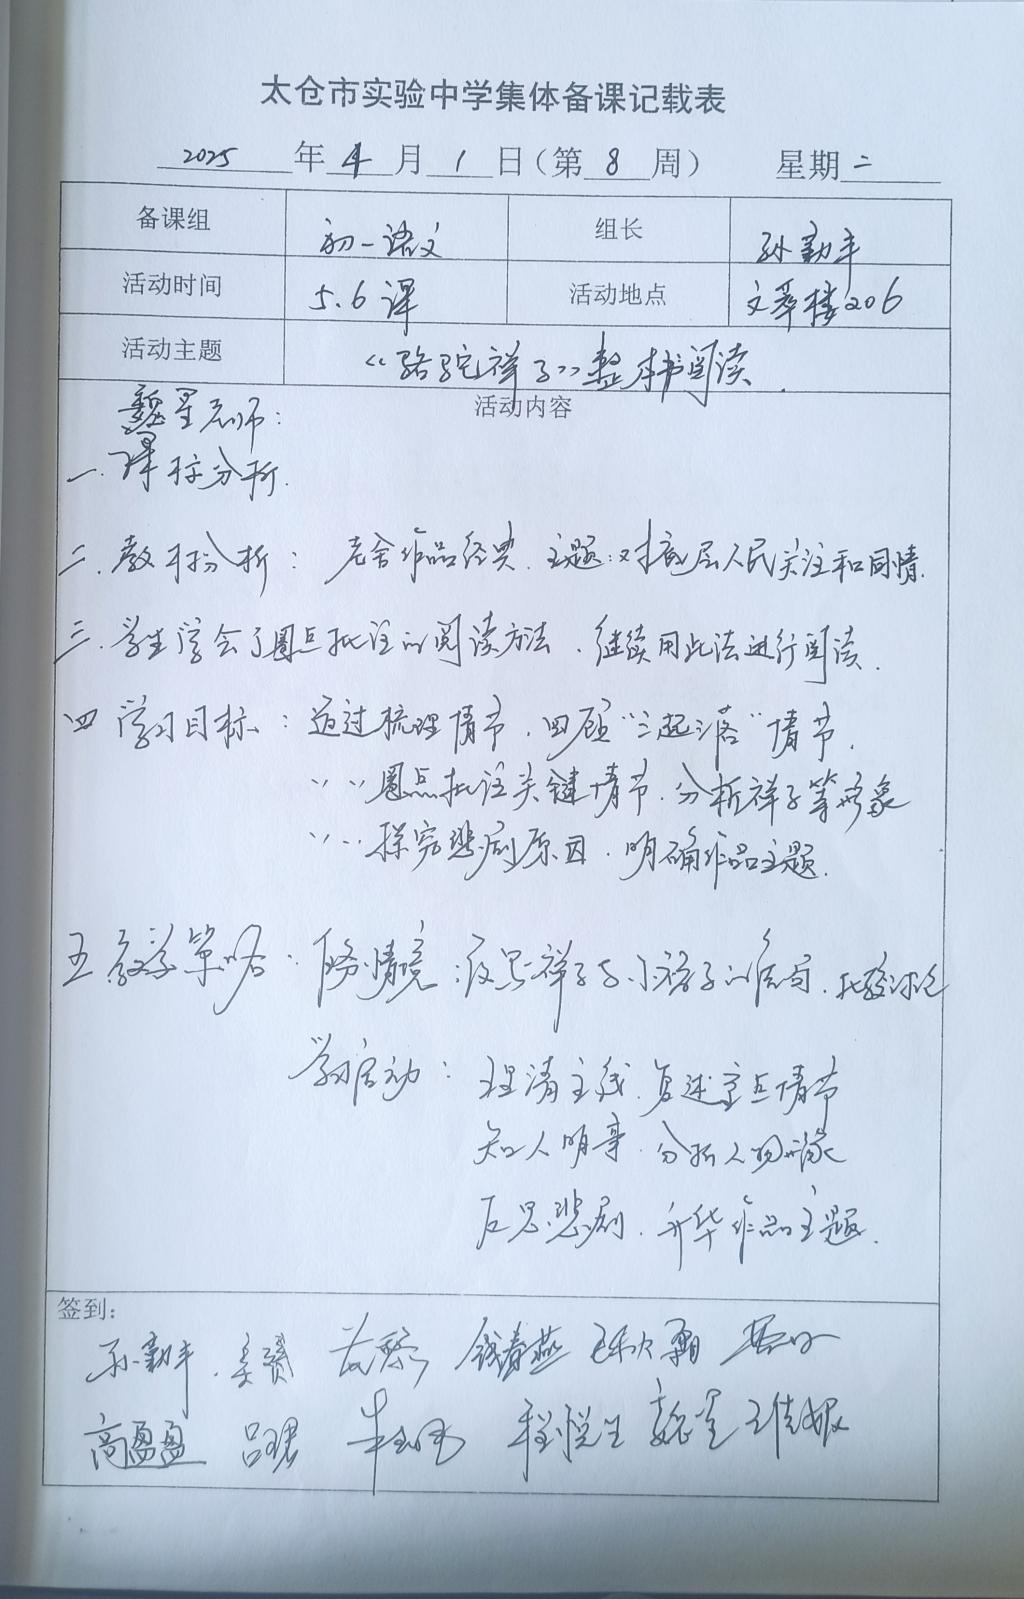 太仓市实验中学集体备课记载表
2025 年 4 月 1 日（第 8 周） 星期 二
备课组 初一语文 组长 孙勤丰
活动时间 5.6课 活动地点 文萃楼206
活动主题 《骆驼祥子》整本书阅读.
活动内容
魏星老师:
一.课标分析.
二.教材分析: 老舍作品经典.主题:对底层人民关注和同情.
三.学生学会了圈点批注的阅读方法.继续用此法进行阅读.
四 学习目标: 通过梳理情节.回顾"三起三落"情节.
圈点批注关键情节.分析祥子等形象
探究悲剧原因.明确作品主题.
五 教学策略: 任务情境: 祥子与小福子的 .比较讨论
学习启动: 理清主线.复述重点情节
知人明事.分析人物形象
反思悲剧.升华作品主题.
签到:
孙勤丰 钱春燕
高盈盈 吕珺 程悦 魏星 王佳妮